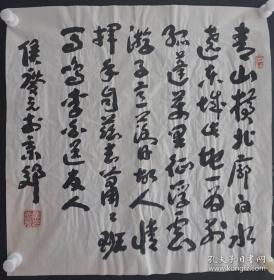 青山横北廓白水
遶东城此地一为别
孤蓬萬里征浮雲
游子意落日故人情
挥手自兹去萧々班
马鸣李白送友人
书京郊
孔夫子旧书网